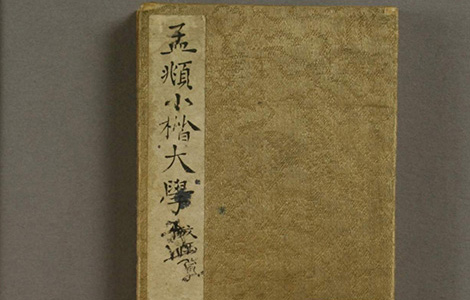 孟頫小楷大學